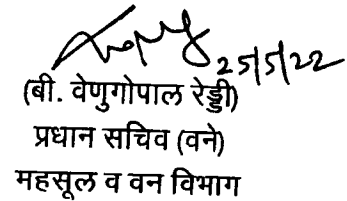 25/5/22
(बी. वेणुगोपाल रेड्डी)
प्रधान सचिव (वने)
महसूल व वन विभाग